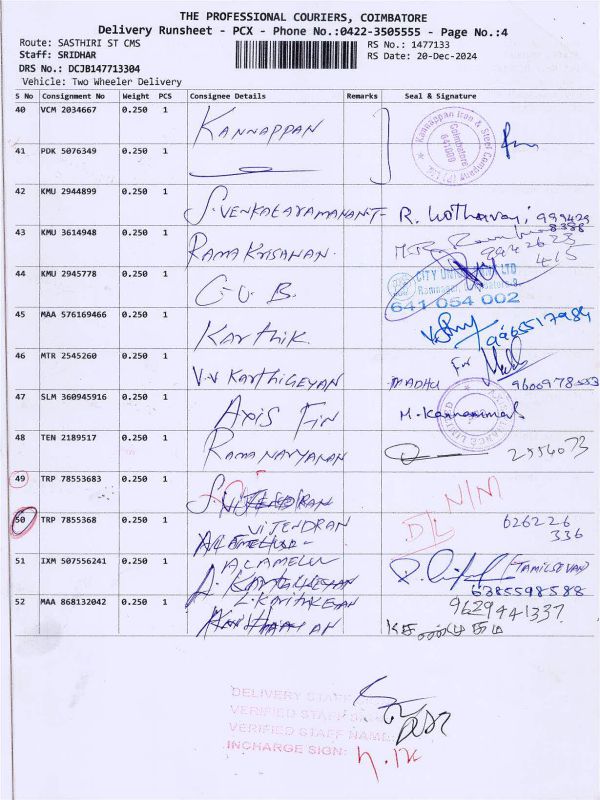 THE PROFESSIONAL COURIERS, COIMBATORE
Delivery Runsheet - PCX - Phone No.:0422-3505555 - Page No.:4
Route: SASTHIRI ST CMS
RS No.: 1477133
Staff: SRIDHAR
RS Date: 20-Dec-2024
DRS No.: DCJB147713304
Vehicle: Two Wheeler Delivery
S No Consignment No Weight PCS Consignee Details Remarks Seal & Signature
40 VCM 2034667 0.250 1 KANNAPPAN
Kannappan Iron & Steel Company (P) Ltd
Coimbatore
641009
41 PDK 5076349 0.250 1
42 KMU 2944899 0.250 1 S. VENKATARAMANAN
43 KMU 3614948 0.250 1 RAMA KRISHNAN.
9942623
415
44 KMU 2945778 0.250 1 C.U.B.
CITY UNION
641 054 002
45 MAA 576169466 0.250 1 Karthik
9965517984
46 MTR 2545260 0.250 1 V.V KARTHIGEYAN
For
MADHU
47 SLM 360945916 0.250 1 AXIS FIN
M. Kannammal
48 TEN 2189517 0.250 1 RAMANARYANAN
2556073
49 TRP 78553683 0.250 1
N/M
50 TRP 7855368 0.250 1 VIJENDRAN
DL
626226
336
51 IXM 507556241 0.250 1 ALAMELU
TAMILSEVAN
6385598588
52 MAA 868132042 0.250 1 L. KARTHIKEYAN
9629441337
DELIVERY STAFF
VERIFIED STAFF
VERIFIED STAFF NAME:
INCHARGE SIGN: